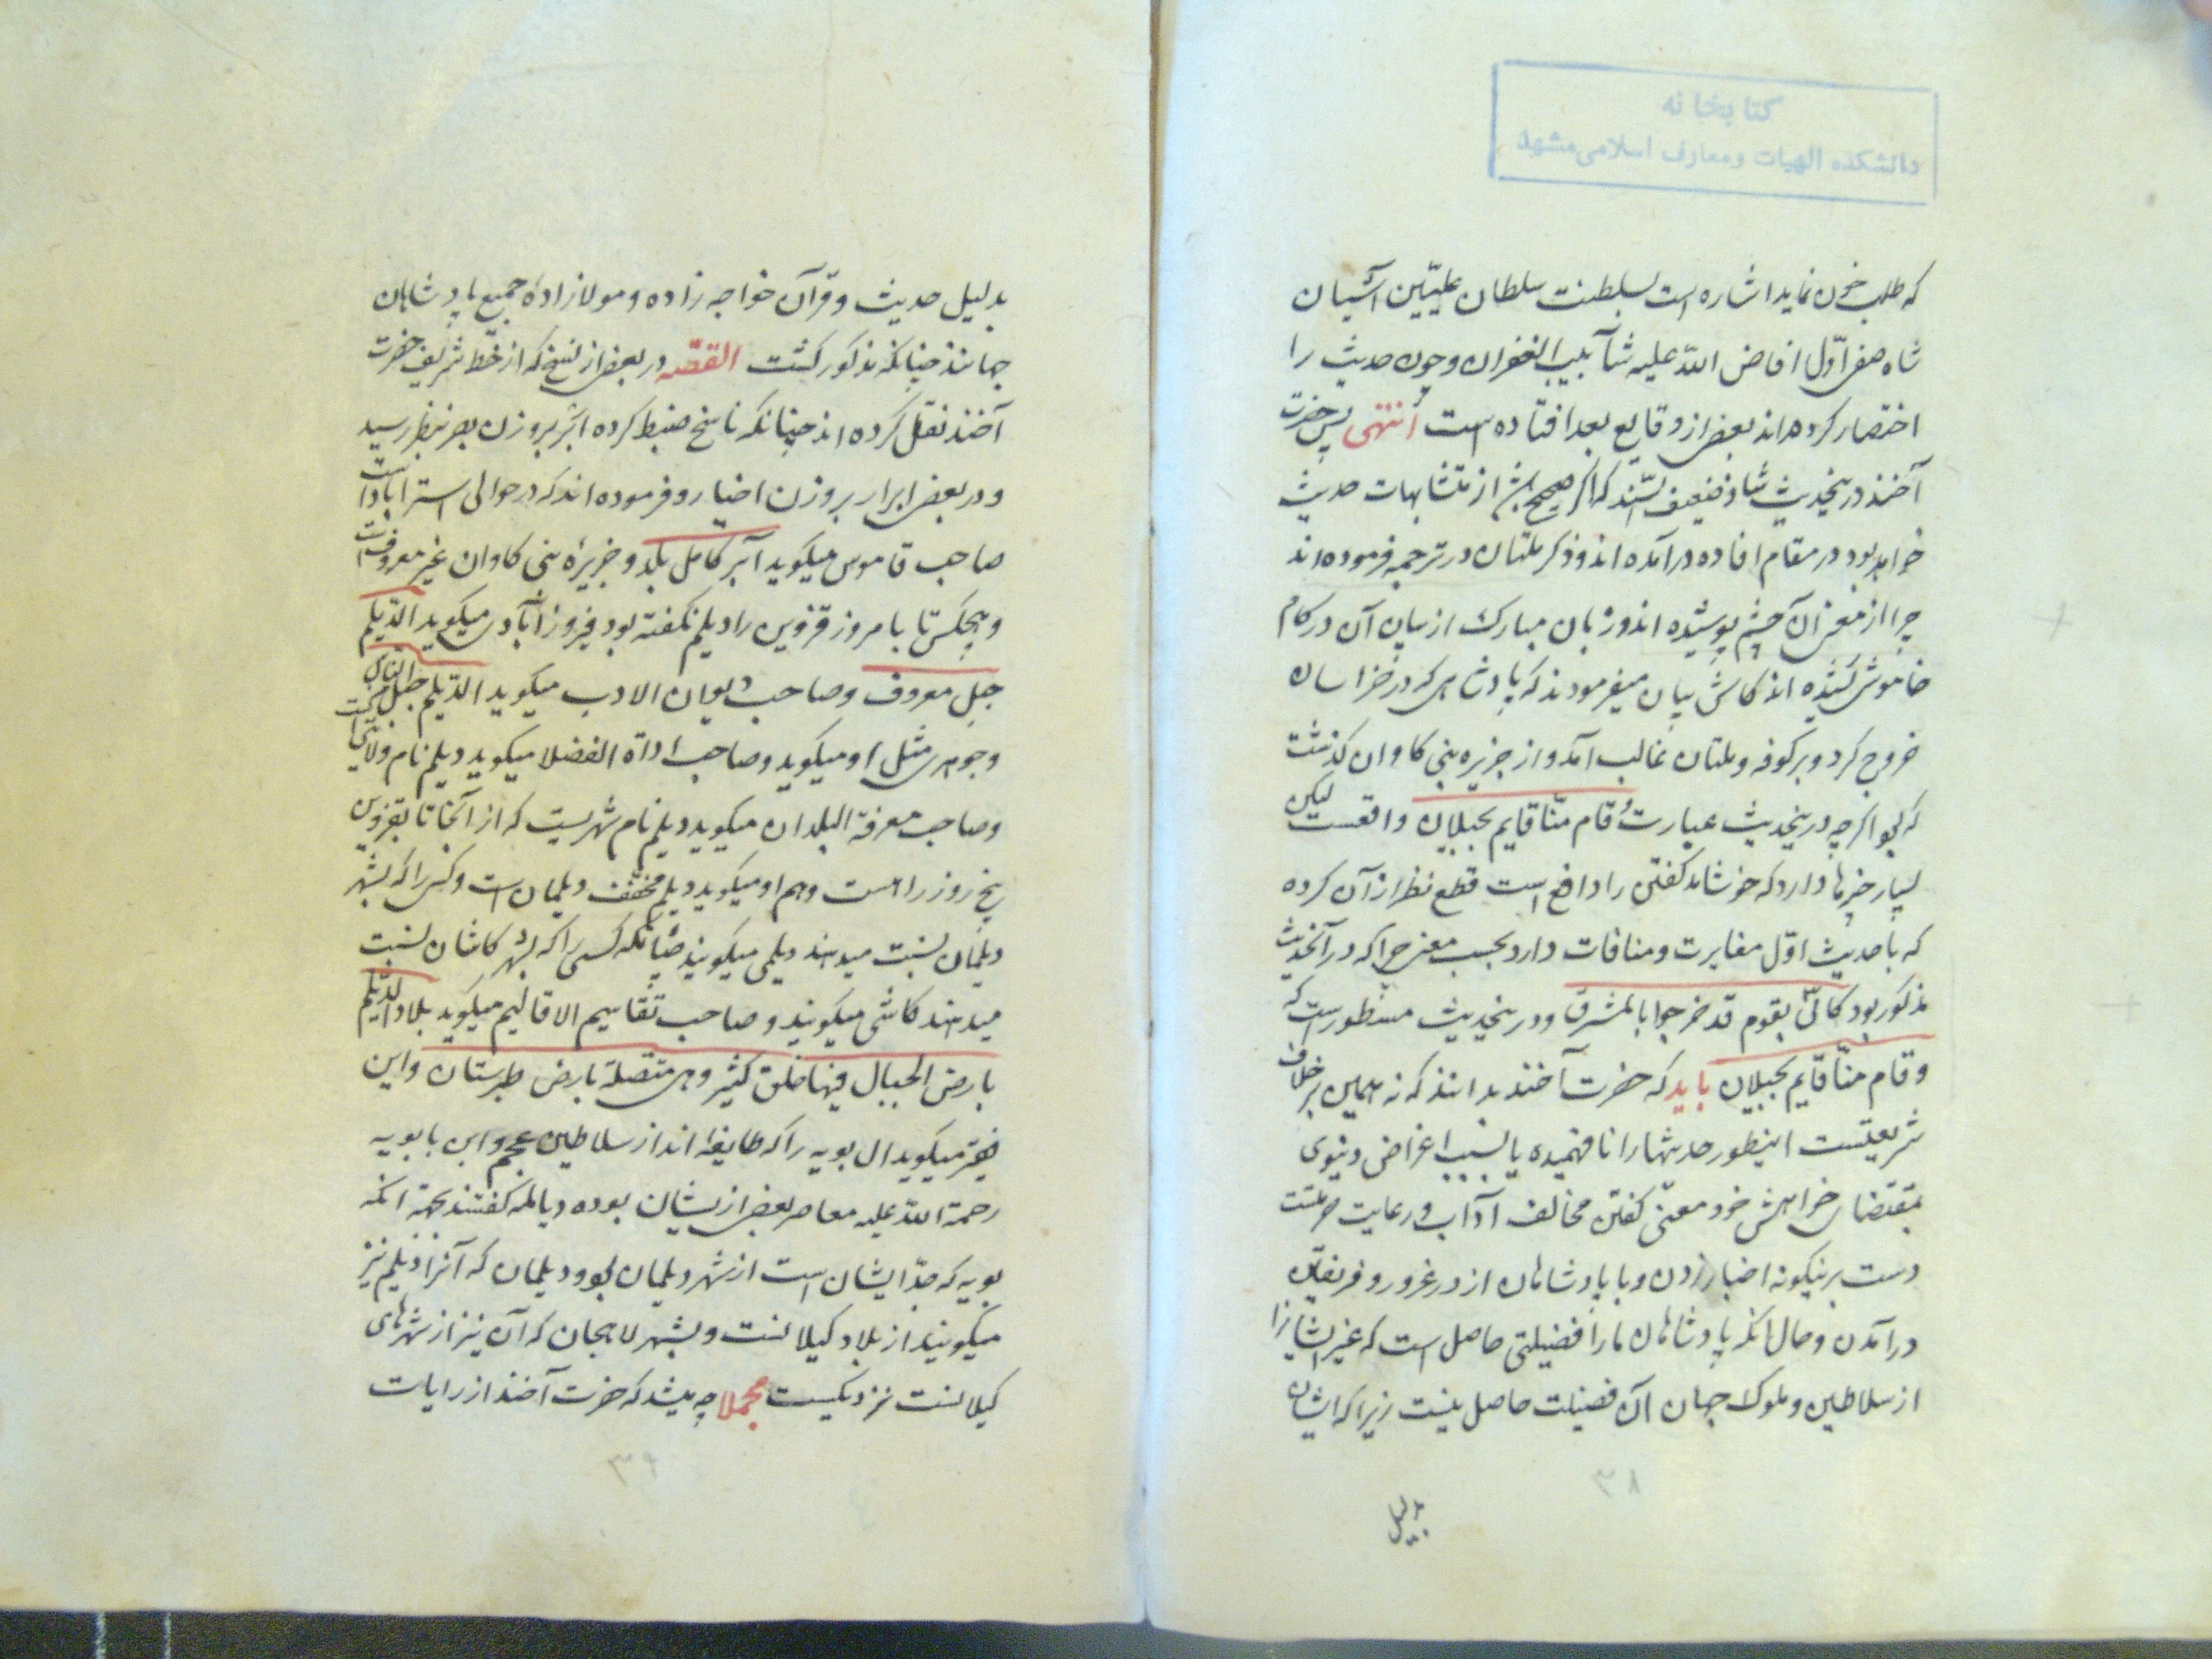 کتابخانه
دانشکده الهیات و معارف اسلامی مشهد
که طلب خون نماید اشاره است بسلطنت سلطان علیّین آشیان
شاه صفی اوّل افاض اللّه علیه شآبیب الغفران و چون حدیث را
اختصار کرده‌اند بعضی از وقایع بعد افتاده است انتهی پس حضرت
آخند درینحدیث شاذ ضعیف السّند که اگر صحیح باشد از متشابهات حدیث
خواهد بود در مقام افاده درآمده اند و ذکر ملتان در ترجمه فرموده‌اند
چرا از معنی آن چشم پوشیده اند و زبان مبارک از بیان آن در کام
خاموشی کشیده اند کاش بیان میفرمودند که پادشاهی که در خراسان
خروج کرد و بر کوفه و ملتان غالب آمد و از جزیره بنی کاوان گذشت
که بود اگرچه درینحدیث عبارت و قام منّا قایم بجیلان واقعست لیکن
بسیار چیزها دارد که خوشامد گفتن را دافع است قطع نظر از آن کرده
که با حدیث اوّل مغایرت و منافات دارد بحسب معنی چرا که در آنحدیث
مذکور بود کانّی بقوم قد خرجوا بالمشرق و درینحدیث مسطور است که
و قام منّا قایم بجیلان باید که حضرت آخند بدانند که نه همین برخلاف
شریعتست اینطور حدیثها را نافهمیده یا بسبب اغراض دنیوی
بمقتضای خواهش خود معنی گفتن مخالف آداب و رعایت حرمتست
دست برینگونه اخبار زدن و با پادشاهان از در غرور و فریفتن
درآمدن و حال آنکه پادشاهان ما را فضیلتی حاصل است که غیر ایشانرا
از سلاطین و ملوک جهان آن فضیلت حاصل نیست زیرا که ایشان
۳۸
بدلیل
بدلیل حدیث و قرآن خواجه زاده و مولازادهٔ جمیع پادشاهان
جهانند چنانکه مذکور گشت القصّه در بعضی از نسخ که از خطّ شریف حضرت
آخند نقل کرده اند چنانکه ناسخ ضبط کرده ابتر بر وزن بنظر رسید
و در بعضی ابرار بر وزن اخیار و فرموده‌اند که در حوالی استراباد است
صاحب قاموس میگوید آبر کامل بلد و جزیرهٔ بنی کاوان غیر معروفست
و هیچکس تا بامروز قزوین را دیلم نگفته بود فیروزآبادی میگوید الدّیلم
جبل معروف و صاحب دیوان الادب میگوید الدّیلم جبل من النّاس
و جوهری مثل او میگوید و صاحب اداة الفضلا میگوید دیلم نام ولایتی است
و صاحب معرفة البلدان میگوید دیلم نام شهریست که از آنجا تا بقزوین
پنج روز راهست و هم او میگوید دیلم مخفّف دیلمان است و کسی را که بشهر
دیلمان نسبت میدهند دیلمی میگویند چنانکه کسی را که بشهر کاشان نسبت
میدهند کاشی میگویند و صاحب تقاسیم الاقالیم میگوید بلاد الدّیلم
بارض الجبال فیها خلق کثیر و هی متّصلة بارض طبرستان و این
فقیر میگوید ال بویه را که طایفه اند از سلاطین عجم و ابن بابویه
رحمة اللّه علیه معاصر بعضی ازیشان بوده دیالمه گفتند بجهة آنکه
بویه که جدّ ایشان است از شهر دیلمان بود و دیلمان که آنرا دیلم نیز
میگویند از بلاد گیلانست و بشهر لاهجان که آن نیز از شهرهای
گیلانست نزدیکست مجملا چه میشد که حضرت آخند از رایات
۳۹